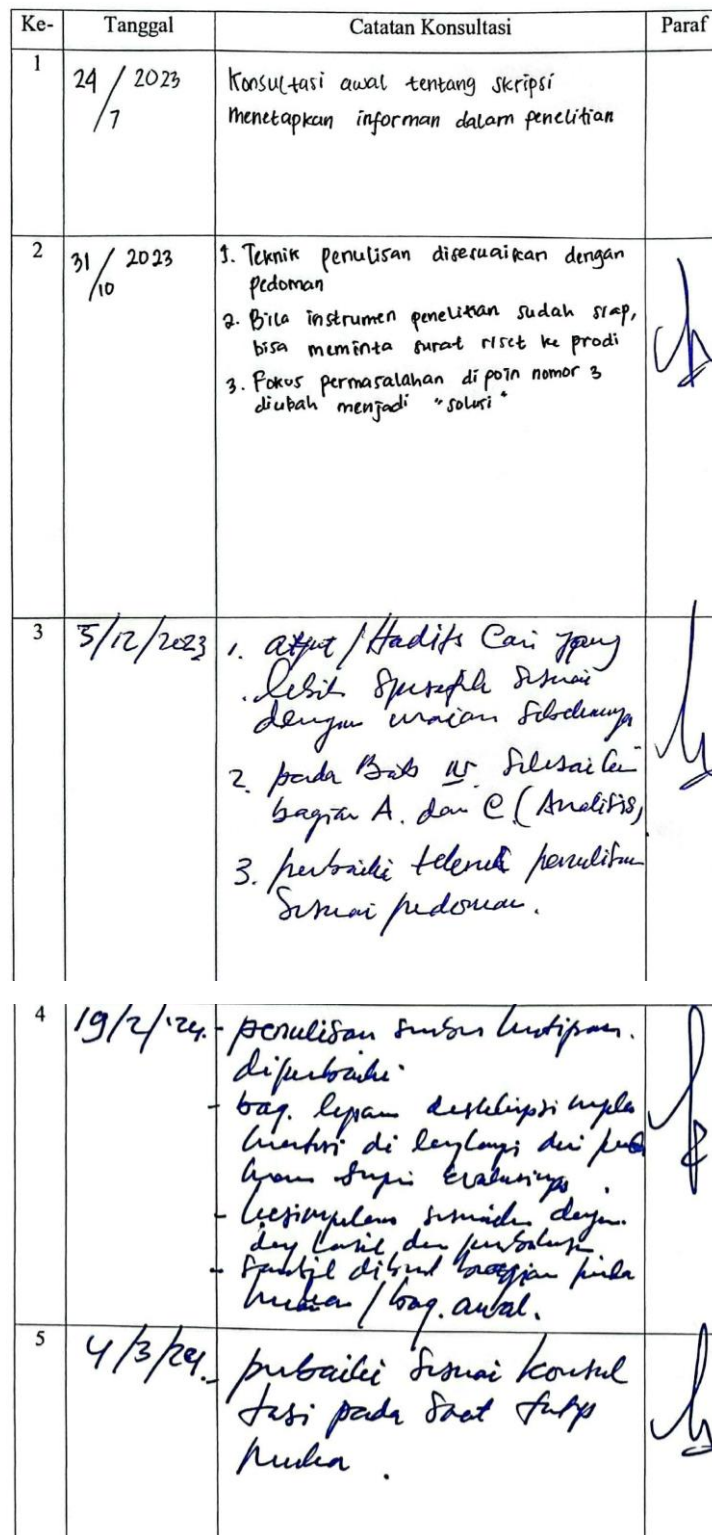 Ke- Tanggal Catatan Konsultasi Paraf
1 24/7 2023 Konsultasi awal tentang skripsi
menetapkan informan dalam penelitian
2 31/10 2023 1. Teknik penulisan disesuaikan dengan
pedoman
2. Bila instrumen penelitian sudah siap,
bisa meminta surat riset ke prodi
3. Fokus permasalahan di poin nomor 3
diubah menjadi "solusi"
3 5/12/2023 1. /Hadits Cari yang
lebih spesifik sesuai
dengan uraian sebelumnya
2. pada Bab IV selesaikan
bagian A. dan C (Analisis)
3. perbaiki teknik penulisan
sesuai pedoman.
4 19/2/'24. - penulisan sumber kutipan.
diperbaiki
- bag. deskripsi imple
mentasi di lengkapi dari
evaluasinya.
- kesimpulan sesuaikan dengan.
hasil dan pembahasan
- dibuat bagian
/bag. awal.
5 4/3/24. - perbaiki sesuai konsul
tasi pada saat tatap
muka.